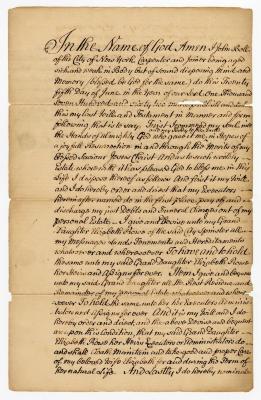 In the Name of God Amen I John Bell
of the City of New York Carpenter and Joiner being aged
sick and weak in Body but of sound disposing Mind and
Memory (blessed be God for the same) do this Twenty
fifth Day of June in the Year of our Lord One Thousand
Seven Hundred and Sixty two make publish and declare
this my last Will and Testament in manner and form
following that is to say. First I commend my Soul into
the Hands of Almighty God who gave it me, in Hopes of
a joyfull Resurrection in and through the Merits of my
blessed Saviour Jesus Christ. And as to such worldly
Estate wherewith it has pleased God to bless me in this
Life I dispose thereof as follows. And first I my Will
and I do hereby order and direct that my Executors
herein after named do in the first place, pay off and
discharge my just Debts and Funeral Charges out of my
personal Estate. I give and devise unto my Grand
Daughter Elizabeth Rouse of the said City Spinster all
my Messuages Lands Tenements and Hereditaments
whatsoever and wheresoever To have and to hold
the same unto my said Grand Daughter Elizabeth Rouse
her Heirs and Assigns for ever. Item I give and bequeath
unto my said Grand Daughter all the Rest Residue and
Remainder of my personal Estate whatsoever and whereso-
ever To hold the same unto her her Executors Adminis-
trators and Assigns for ever. And it is my Will and I do
hereby order and direct, and the above Devise and Bequest
are upon this Condition, that my said Grand Daughter
Elizabeth Rouse her Heirs Executors or Administrators do
and shall Cloath Maintain and take good and proper Care
of my beloved Wife Elizabeth for and during the Term of
her natural Life. And Lastly I do hereby nominate